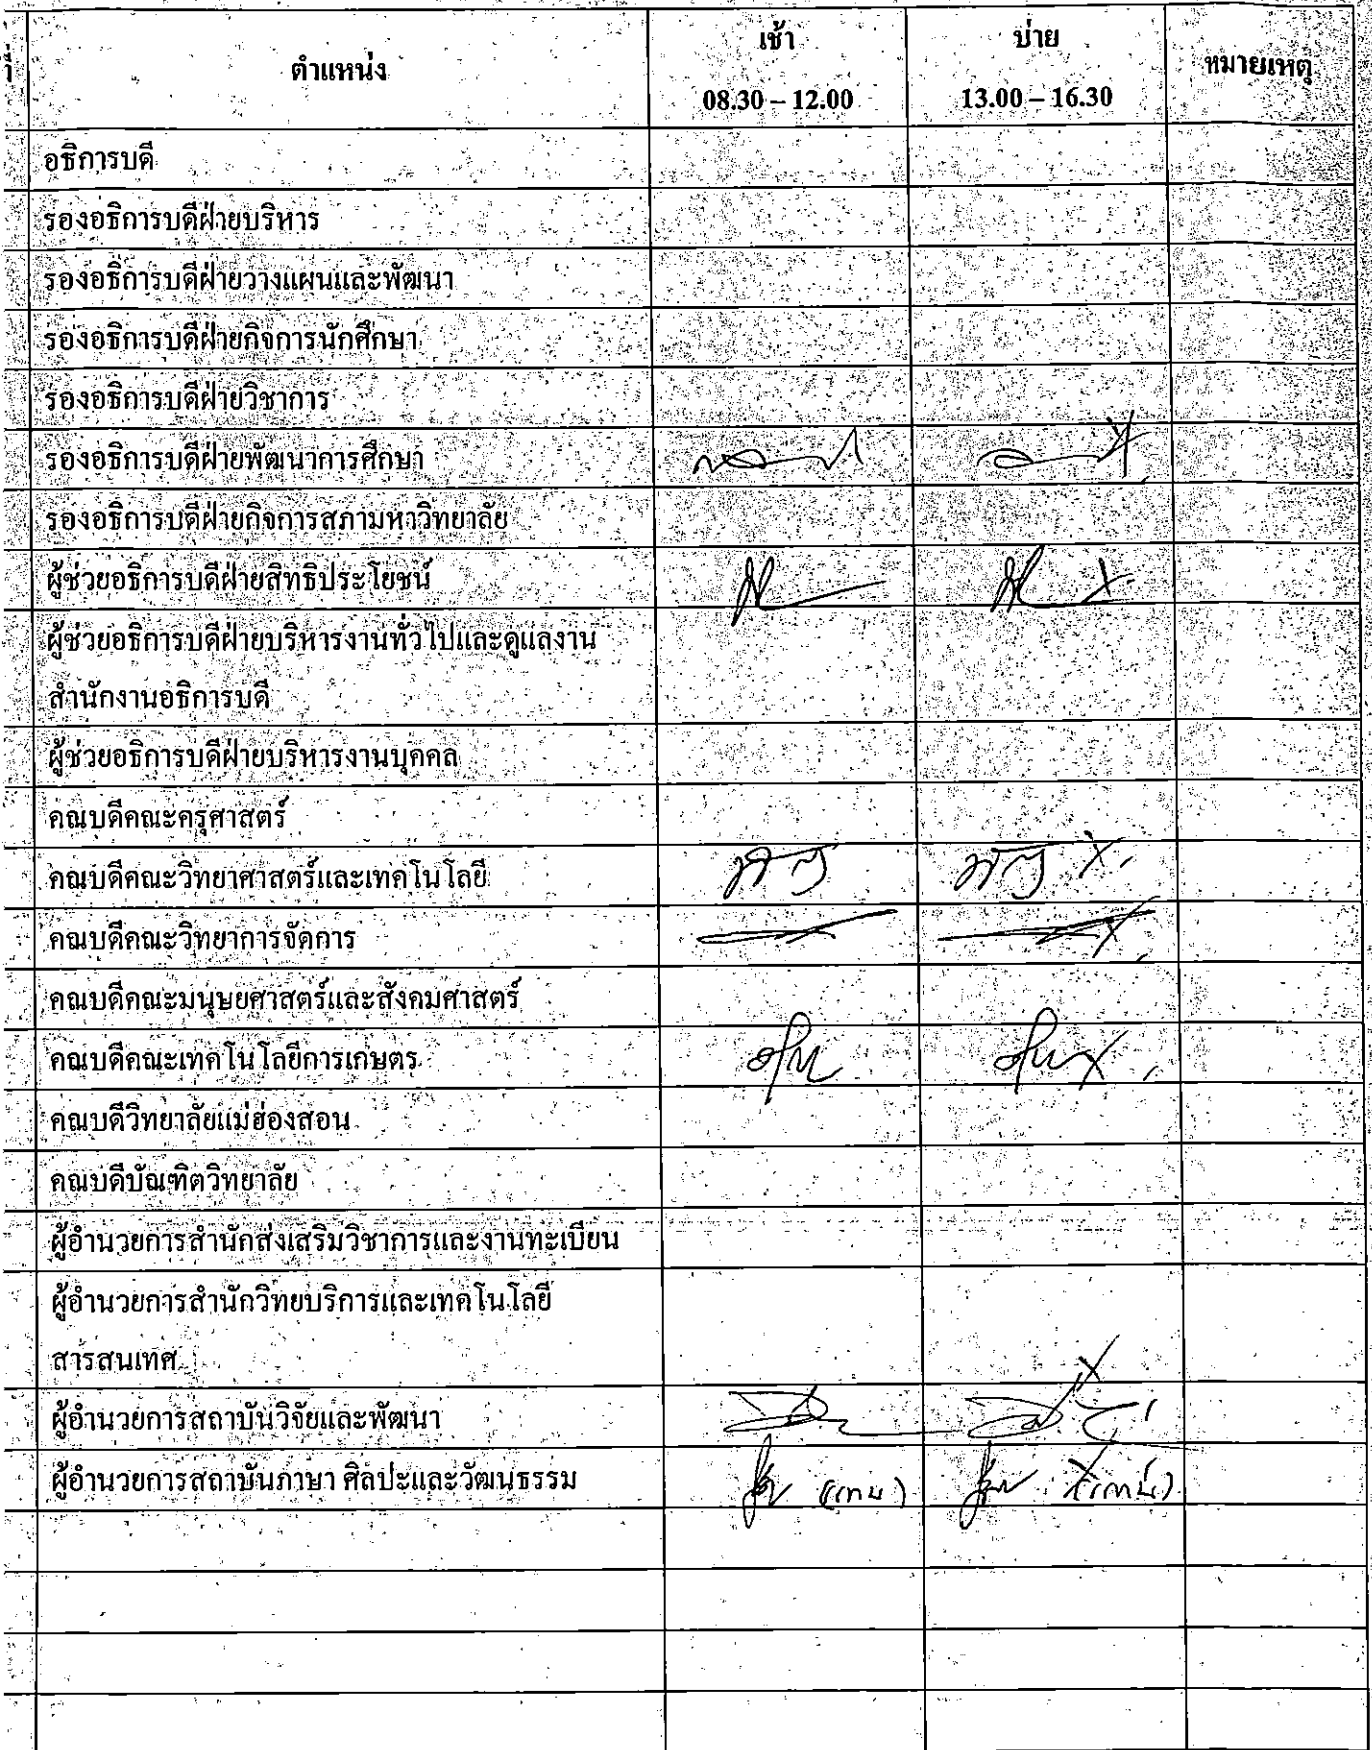 ที่ ตำแหน่ง เช้า 08.30 – 12.00 บ่าย 13.00 – 16.30 หมายเหตุ
อธิการบดี
รองอธิการบดีฝ่ายบริหาร
รองอธิการบดีฝ่ายวางแผนและพัฒนา
รองอธิการบดีฝ่ายกิจการนักศึกษา
รองอธิการบดีฝ่ายวิชาการ
รองอธิการบดีฝ่ายพัฒนาการศึกษา
รองอธิการบดีฝ่ายกิจการสภามหาวิทยาลัย
ผู้ช่วยอธิการบดีฝ่ายสิทธิประโยชน์
ผู้ช่วยอธิการบดีฝ่ายบริหารงานทั่วไปและดูแลงาน
สำนักงานอธิการบดี
ผู้ช่วยอธิการบดีฝ่ายบริหารงานบุคคล
คณบดีคณะครุศาสตร์
คณบดีคณะวิทยาศาสตร์และเทคโนโลยี
คณบดีคณะวิทยาการจัดการ
คณบดีคณะมนุษยศาสตร์และสังคมศาสตร์
คณบดีคณะเทคโนโลยีการเกษตร
คณบดีวิทยาลัยแม่ฮ่องสอน
คณบดีบัณฑิตวิทยาลัย
ผู้อำนวยการสำนักส่งเสริมวิชาการและงานทะเบียน
ผู้อำนวยการสำนักวิทยบริการและเทคโนโลยี
สารสนเทศ
ผู้อำนวยการสถาบันวิจัยและพัฒนา
ผู้อำนวยการสถาบันภาษา ศิลปะและวัฒนธรรม (แทน) (แทน)